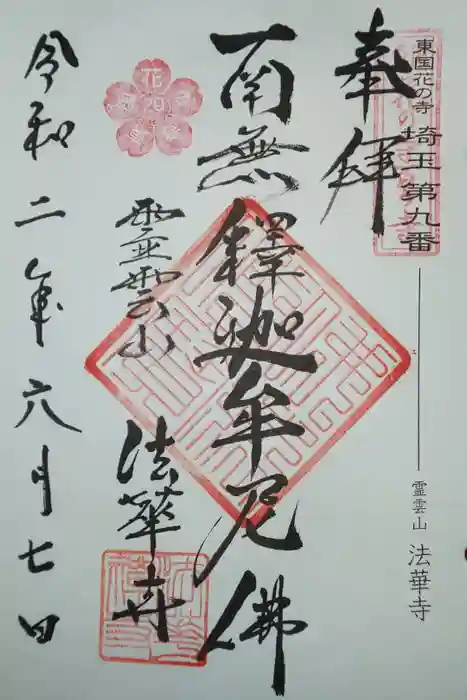 東国花の寺
埼玉第九番
霊雲山 法華寺
奉拝
南無釋迦牟尼佛
霊雲山
法華寺
令和二年六月七日
花
29